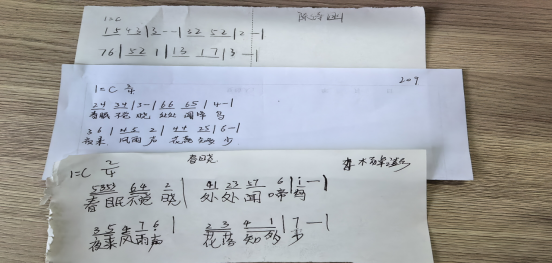 1=C
1543|3--|32 52|2-|
76|52 1|13 17|3-|
209
1=C 2/4
24 34|3-|66 65|4-|
春眠 不觉 晓 处处 闻啼 鸟
36|45 2|44 25|6-|
夜来 风雨声 花落 知多 少
春晓
1=C 2/4
5353 64 2|41 23 57 6|i-|
春眠不觉晓 处处闻啼鸟
35 4 7 6|23 4 1|7-|
夜来风雨声 花落知多少